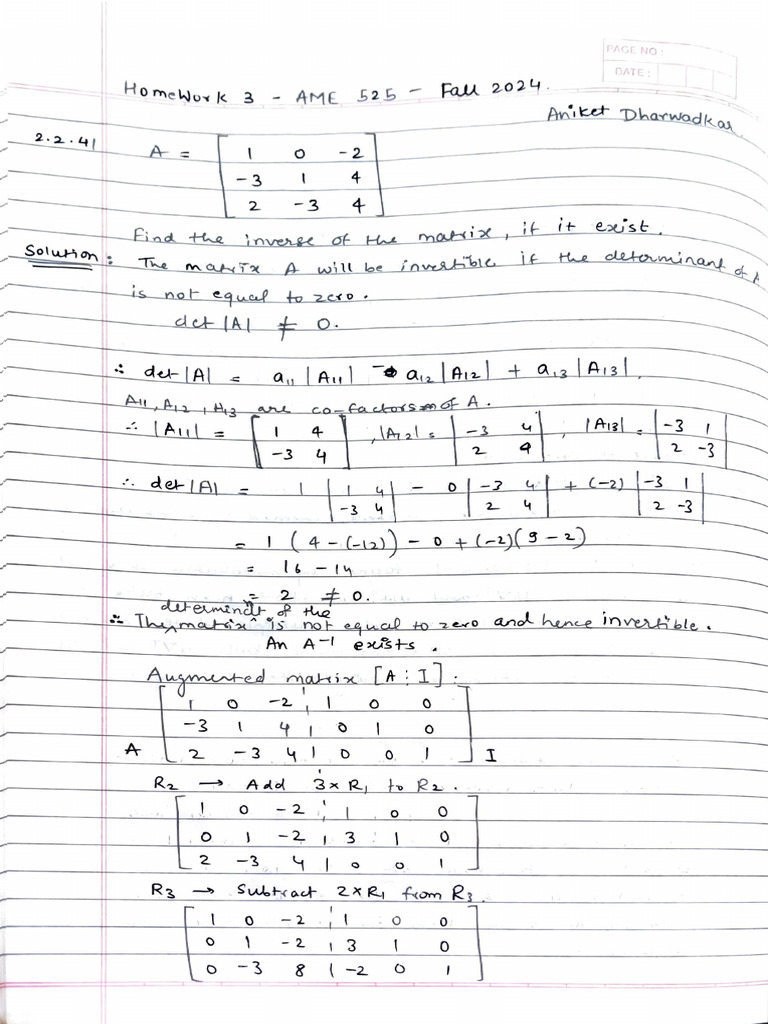 PAGE NO :
DATE :
Homework 3 - AME 525 - Fall 2024.
Aniket Dharwadkar
2.2.41 A = [ 1 0 -2
-3 1 4
2 -3 4 ]
Find the inverse of the matrix, if it exist.
Solution : The matrix A will be invertible if the determinant of A
is not equal to zero.
det |A| ≠ 0.
∴ det |A| = a11 |A11| - a12 |A12| + a13 |A13|
A11, A12, A13 are co-factors of A.
∴ |A11| = [ 1 4 ], |A12| = | -3 4 |, |A13| = | -3 1 |
[ -3 4 ] | 2 4 | | 2 -3 |
∴ det |A| = 1 | 1 4 | - 0 | -3 4 | + (-2) | -3 1 |
| -3 4 | | 2 4 | | 2 -3 |
= 1 ( 4 - (-12)) - 0 + (-2)( 9 - 2)
= 16 - 14
= 2 ≠ 0.
determindt of the
∴ The ^ matrix is not equal to zero and hence invertible.
An A-1 exists.
Augmented matrix [A ⋮ I].
[ 1 0 -2 | 1 0 0
-3 1 4 | 0 1 0
A 2 -3 4 | 0 0 1 ] I
R2 → Add 3 × R1 to R2.
[ 1 0 -2 | 1 0 0
0 1 -2 | 3 1 0
2 -3 4 | 0 0 1 ]
R3 → Subtract 2×R1 from R3.
[ 1 0 -2 | 1 0 0
0 1 -2 | 3 1 0
0 -3 8 | -2 0 1 ]